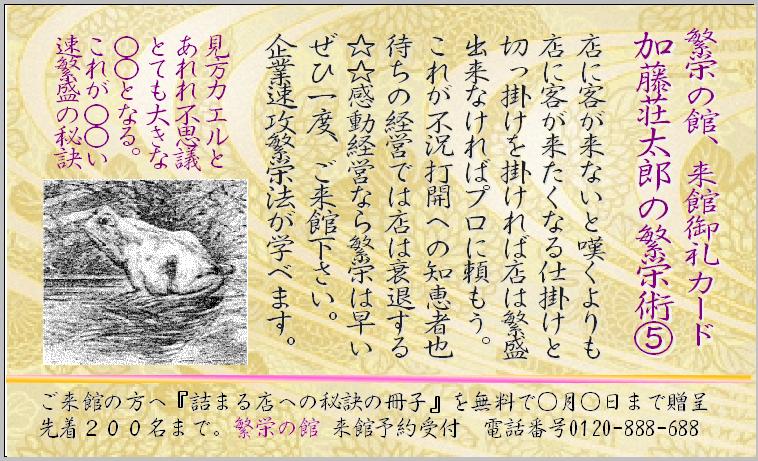 繁栄の館、来館御礼カード
加藤荘太郎の繁栄術⑤
店に客が来ないと嘆くよりも
店に客が来たくなる仕掛けと
切っ掛けを掛ければ店は繁盛
出来なければプロに頼もう。
これが不況打開への知恵者也
待ちの経営では店は衰退する
☆☆感動経営なら繁栄は早い
ぜひ一度、ご来館下さい。
企業速攻繁栄法が学べます。
見方カエルと
あれれ不思議
とても大きな
〇〇となる。
これが〇〇い
速繁盛の秘訣
ご来館の方へ『詰まる店への秘訣の冊子』を無料で〇月〇日まで贈呈
先着200名まで。繁栄の館 来館予約受付　電話番号0120-888-688